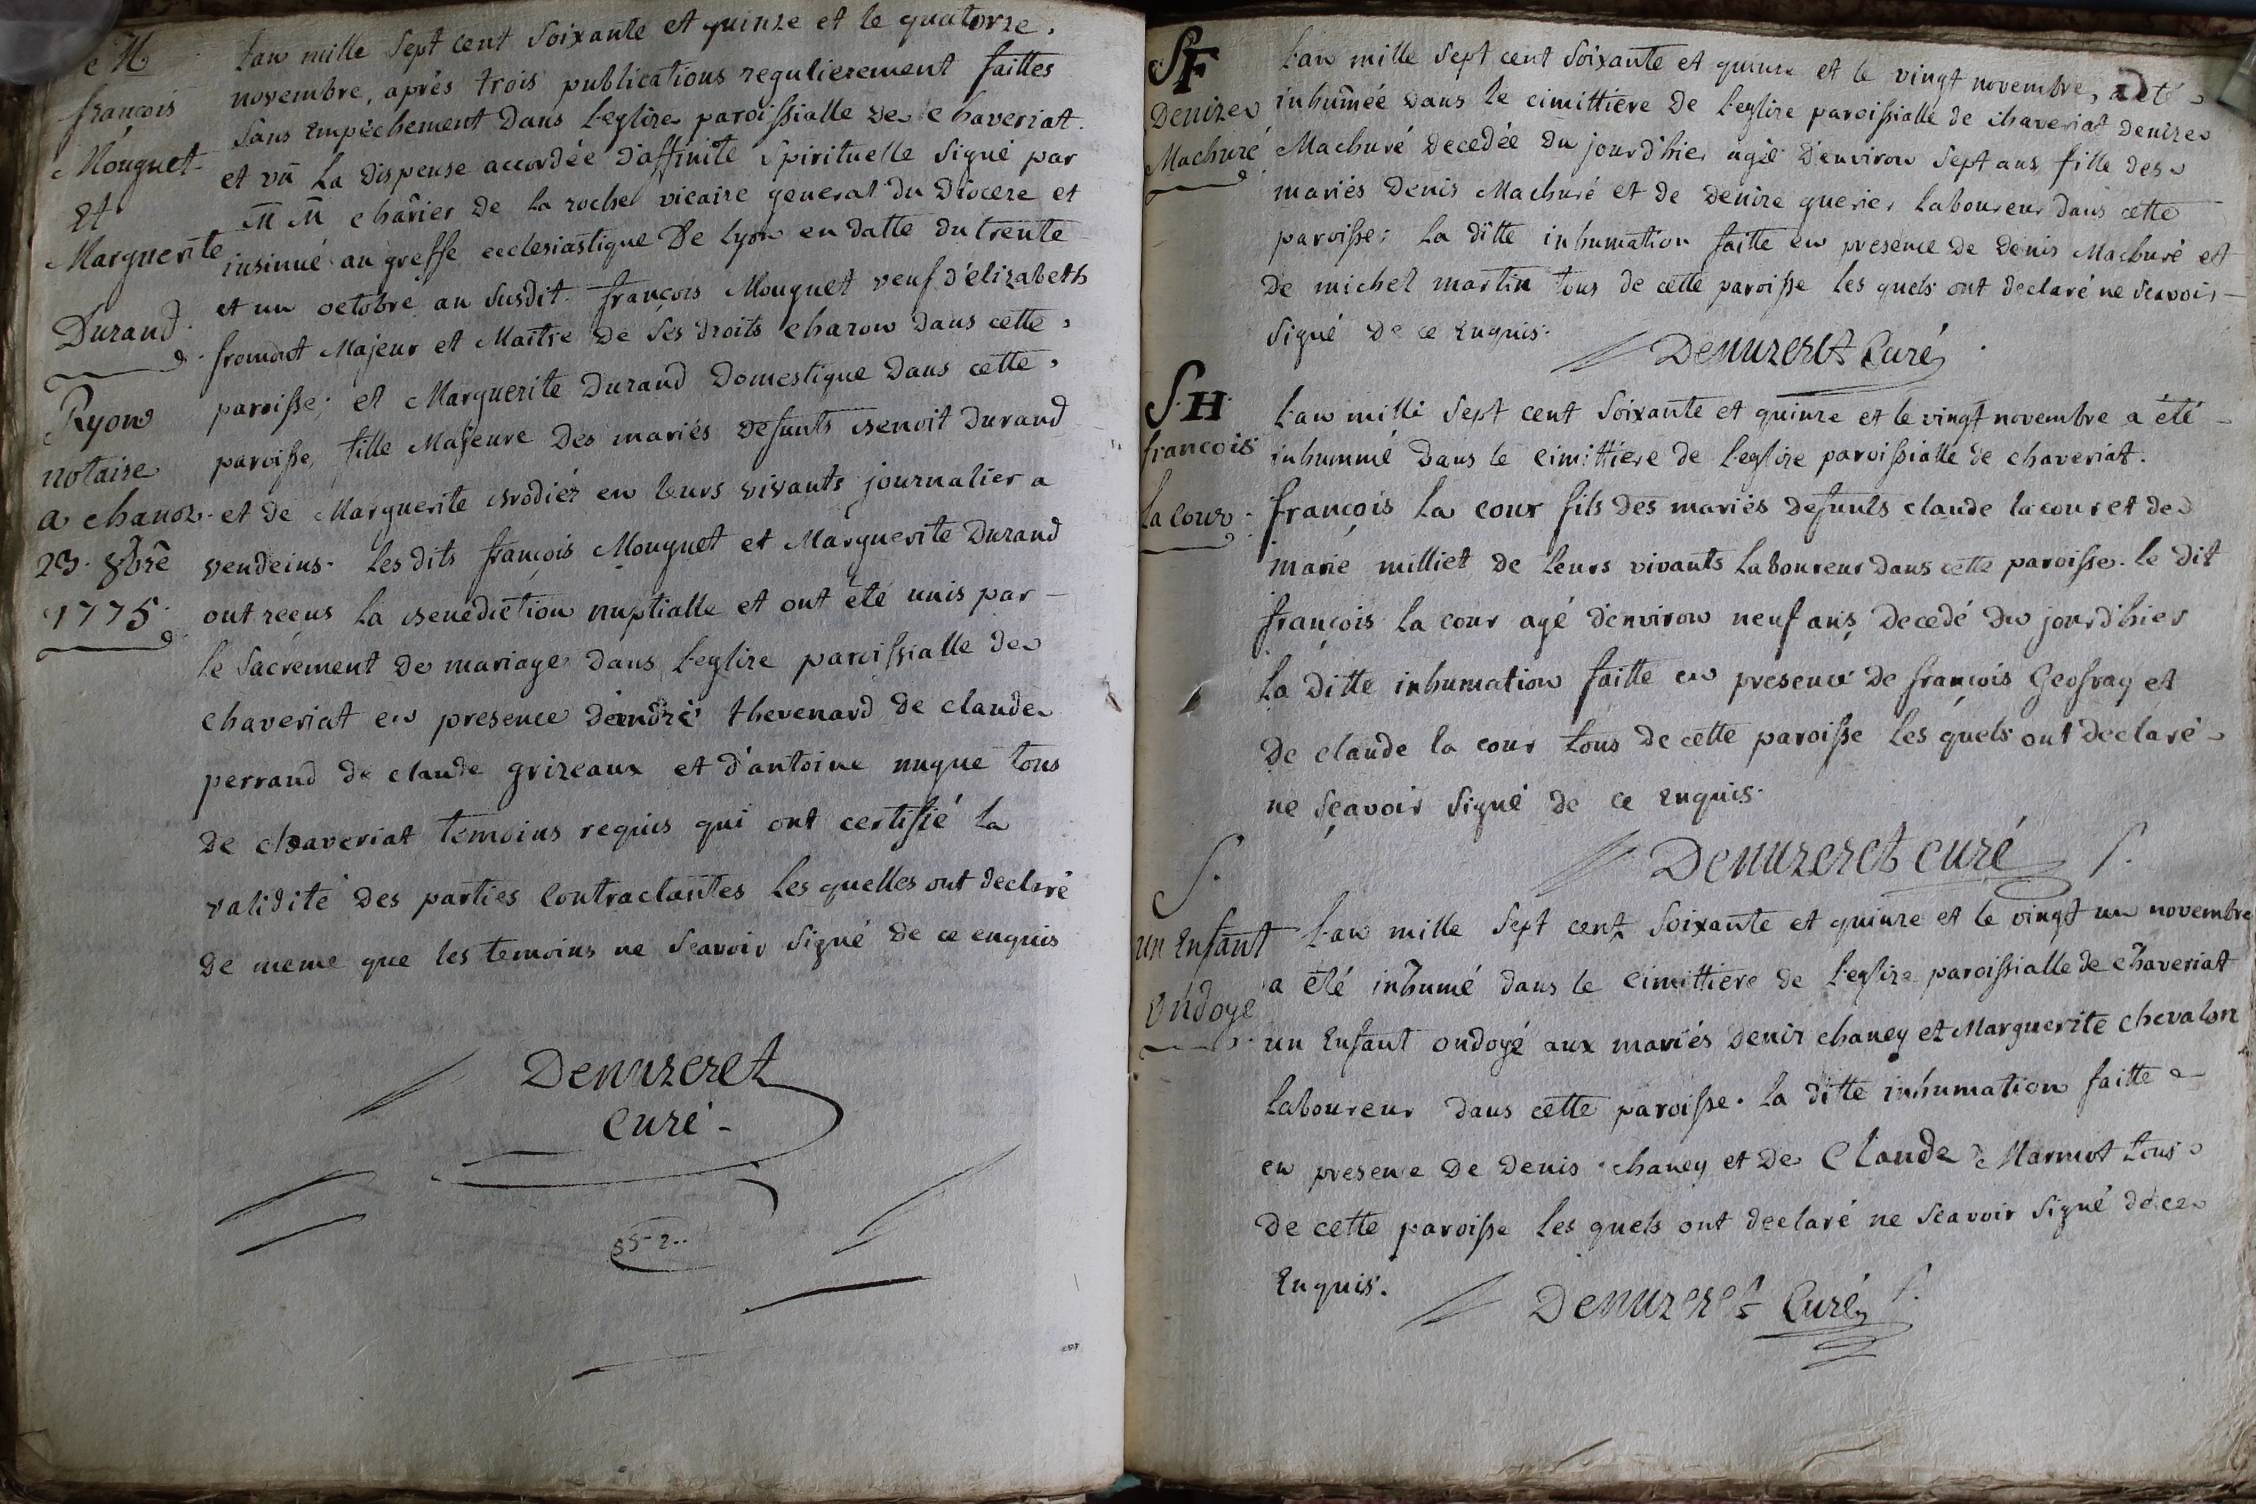 M
françois
Mouguet
Et
Marguerite
Durand
Ryon
notaire
a chanoz
23. 8bre
1775
L'an mille Sept cent Soixante et quinze et le quatorze
novembre, aprés trois publications regulierement faittes
Sans Empêchement Dans l'eglize paroissialle de chaveriat
et vû La dispense accordée d'affinité Spirituelle Signé par
M M charier de la roche vicaire general du Diocéze et
insinué au greffe ecclesiastique De Lyon en datte du trente
et un octobre an Susdit. françois Mouguet veuf d'élizabeth
fromont Majeur et Maitre de Ses droits charon dans cette
paroisse; et Marguerite Durand Domestique Dans cette
paroisse, fille Majeure Des mariés defunts Benoit Durand
et de Marguerite Brodiéz en leurs vivants journalier a
vendeins. les dits françois Mouguet et Marguerite Durand
ont reçus la Benediction nuptialle et ont été unis par
le Sacrement de mariage dans l'eglize paroissialle de
chaveriat en presence d'andré thevenard de claude
perrand de claude grizeaux et d'antoine nugue tous
de chaveriat temoins requis qui ont certifié la
validité des parties Contractantes les quelles ont declaré
de meme que les temoins ne Scavoir Signé de ce enquis
Denuzeret
Curé
SF
Denize
Machuré
L'an mille Sept cent Soixante et quinze et le vingt novembre, a eté
inhumée dans le cimittiere de l'eglize paroissialle de chaveriat denize
Machuré decedée du jourd'hier agée d'environ Sept ans fille des
mariés Denis Machuré et de denize querier Laboureur Dans cette
paroisse; la ditte inhumation faitte en presence de Denis Machuré et
de michel martin tous de cette paroisse les quels ont declaré ne scavoir
Signé de ce Enquis.
Denuzeret Curé
S.H.
françois
La Cour
L'an mille Sept cent Soixante et quinze et le vingt novembre a été
inhummé Dans le cimittiere de l'eglize paroissialle de chaveriat.
françois La cour fils des mariés defunts claude la cour et de
marie milliet de leurs vivants Laboureur dans cette paroisse. le dit
françois la cour agé d'environ neuf ans Decedé du jourd'hier
La ditte inhumation faitte en presence de françois Geofray et
de claude la cour tous de cette paroisse les quels ont declaré
ne sçavoir Signé de ce Enquis.
Denuzeret curé
S.
un Enfant
Ondoyé
L'an mille Sept cent Soixante et quinze et le vingt un novembre
a été inhumé dans le cimittiere de l'eglize paroissialle de chaveriat
un Enfant ondoyé aux mariés Deniz chaney et Marguerite chevalon
Laboureur dans cette paroisse. la ditte inhumation faitte
en presence de Denis chaney et de Claude Marmot tous
de cette paroisse les quels ont declaré ne Scavoir Signé de ce
Enquis.
Denuzeret Curé